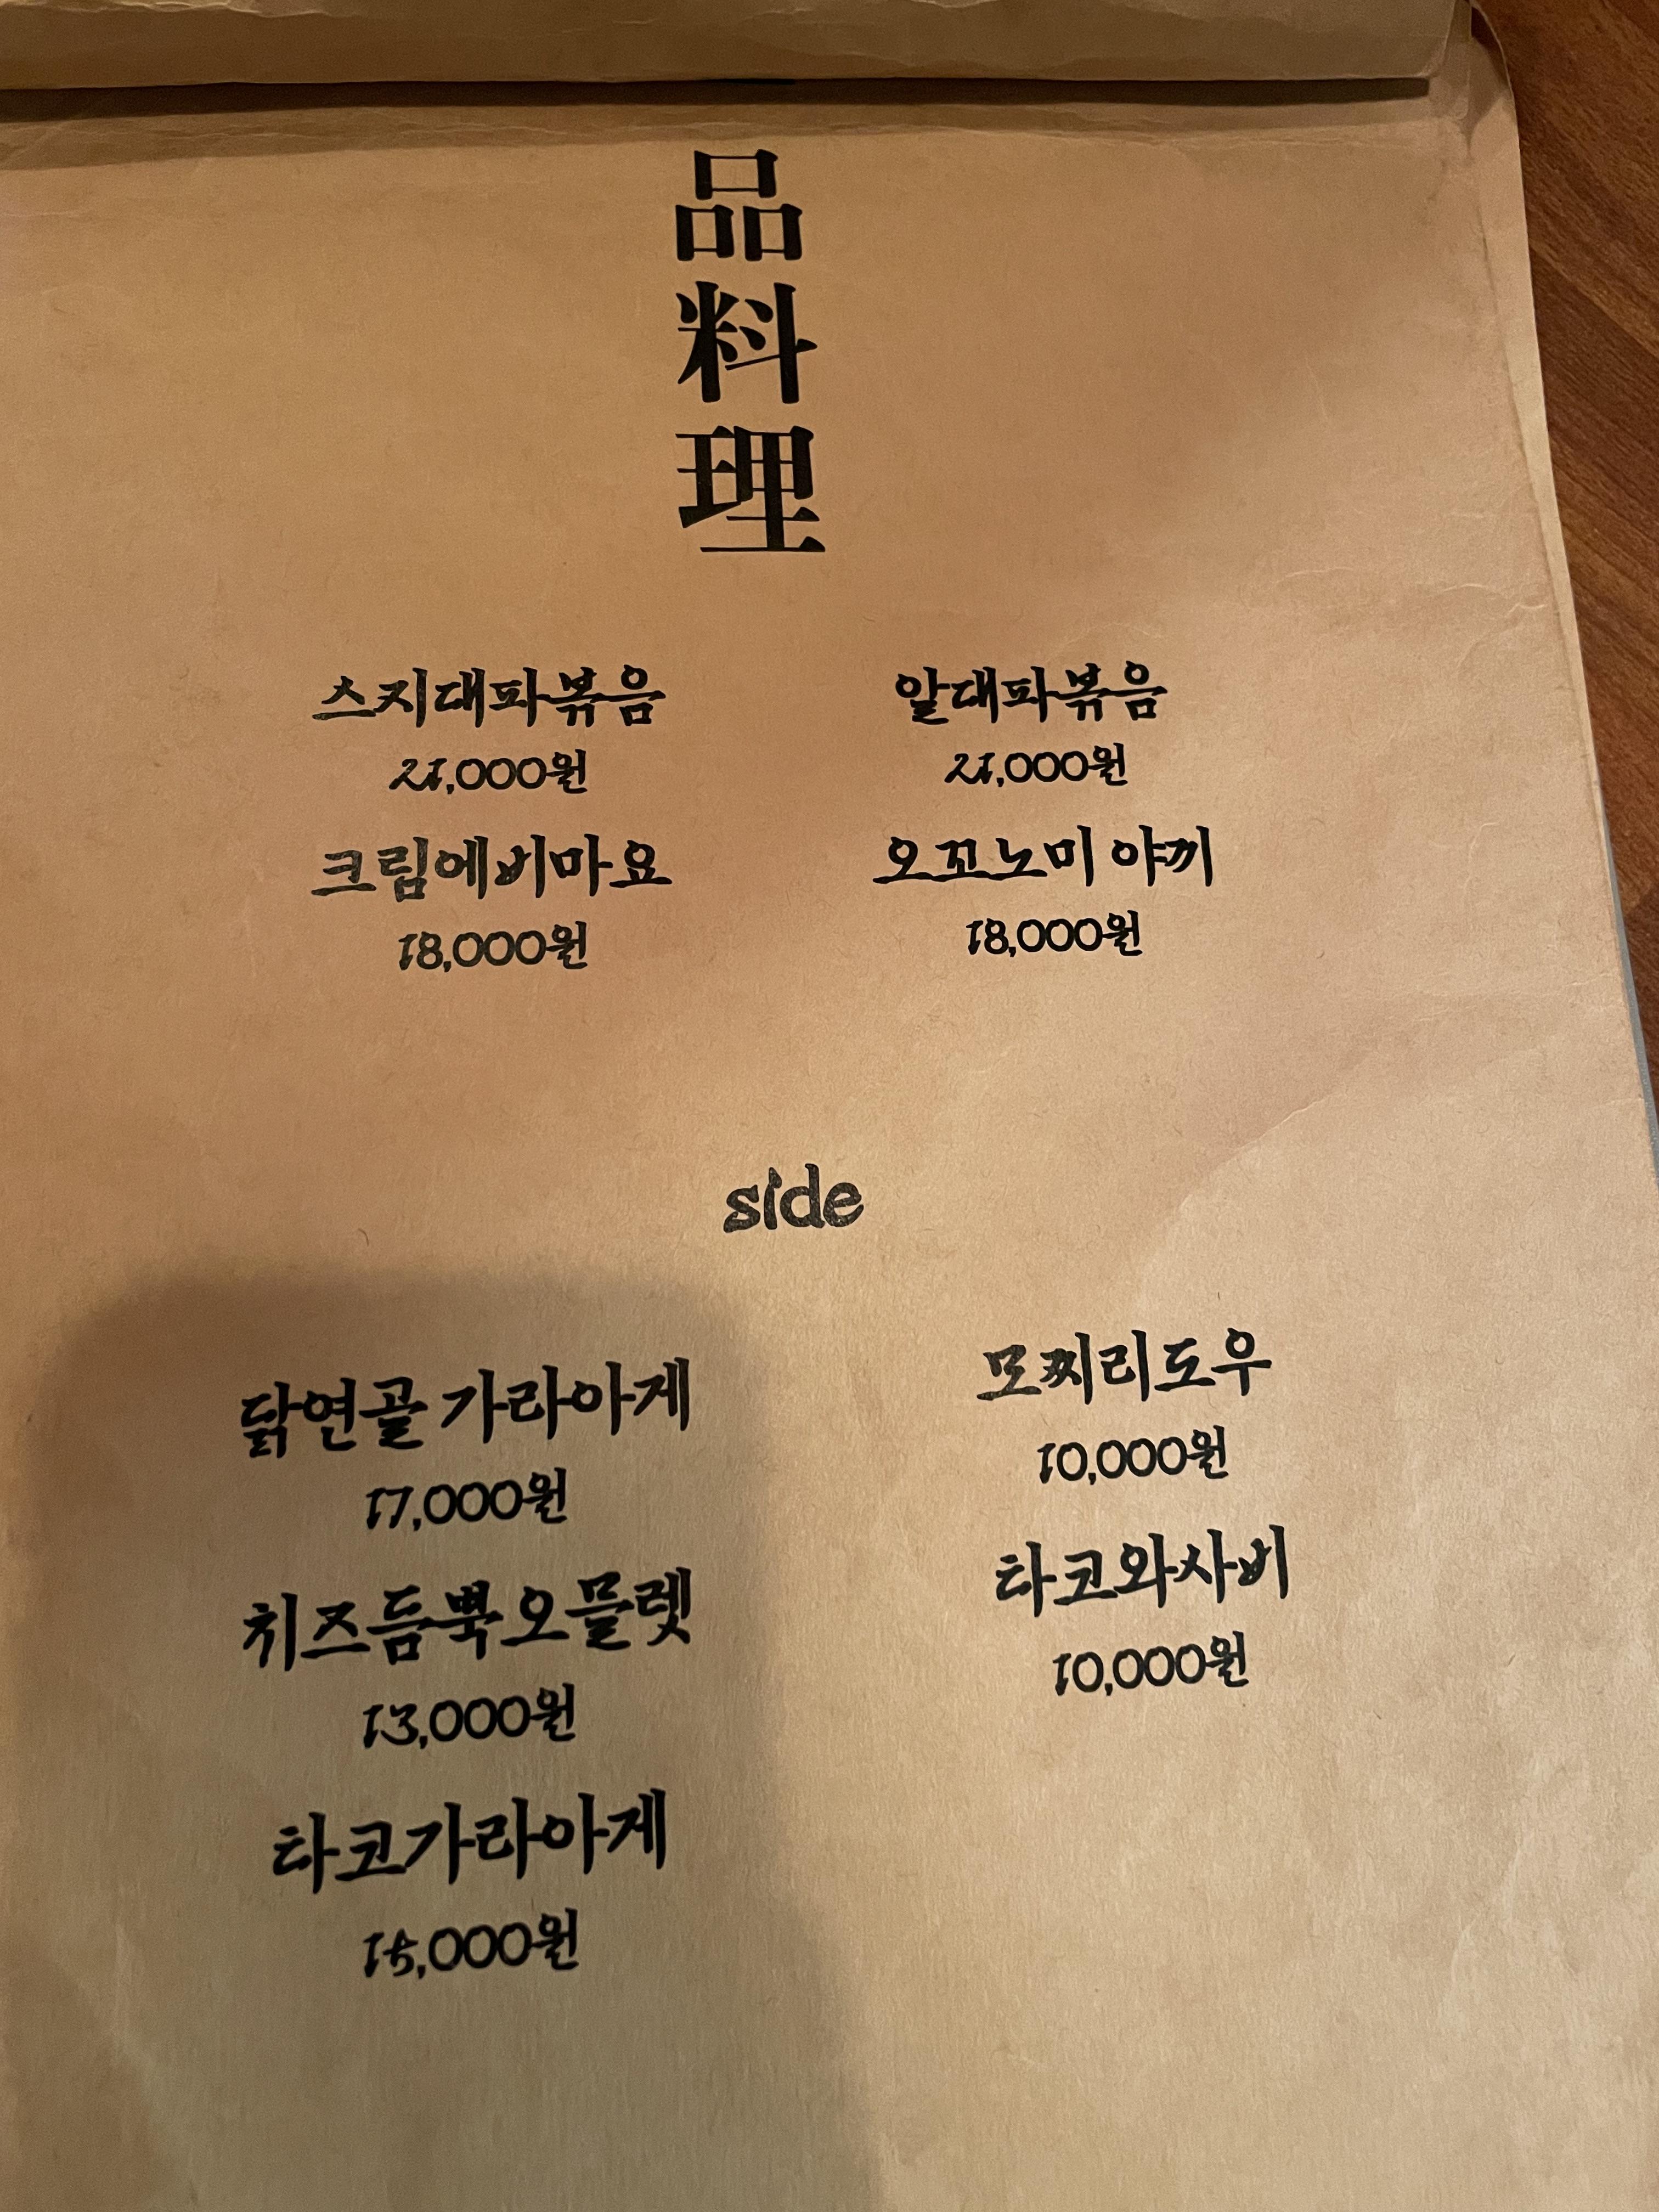 品料理
스지대파볶음
21,000원
알대파볶음
21,000원
크림에비마요
18,000원
오꼬노미 야끼
18,000원
side
닭연골 가라아게
17,000원
치즈듬뿍오믈렛
13,000원
타코가라아게
15,000원
모찌리도우
10,000원
타코와사비
10,000원